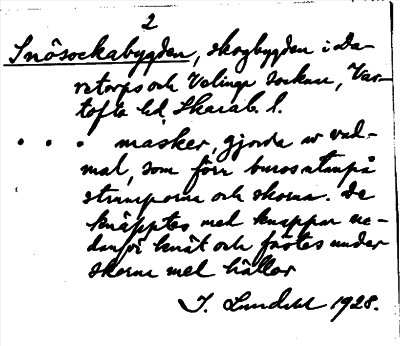 2
Snösockabygden, skogbygden i Da-
retorps och Velinge socknar, Var-
tofta hd, Skarab. l.
. . . masker, gjorda av vad-
mal, som förr buros utanpå
strumporna och skorna. De
knäpptes med knappar ne-
danför knät och fästes under
skorna med hällor
J. Lundahl 1928.